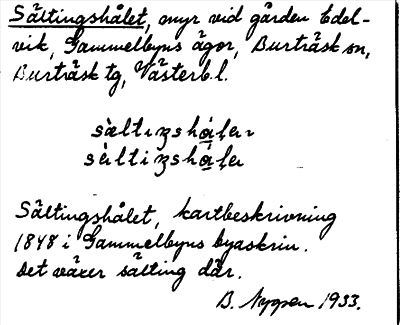 Sältingshålet, myr vid gården Edel-
vik, Gammelbyns ägor, Burträsk sn,
Burträsk tg, Västerb.l.
Sältingshålet, kartbeskrivning
1848 i Gammelbyns byaskrin.
Det växer sälting där.
B. Nygren 1933.